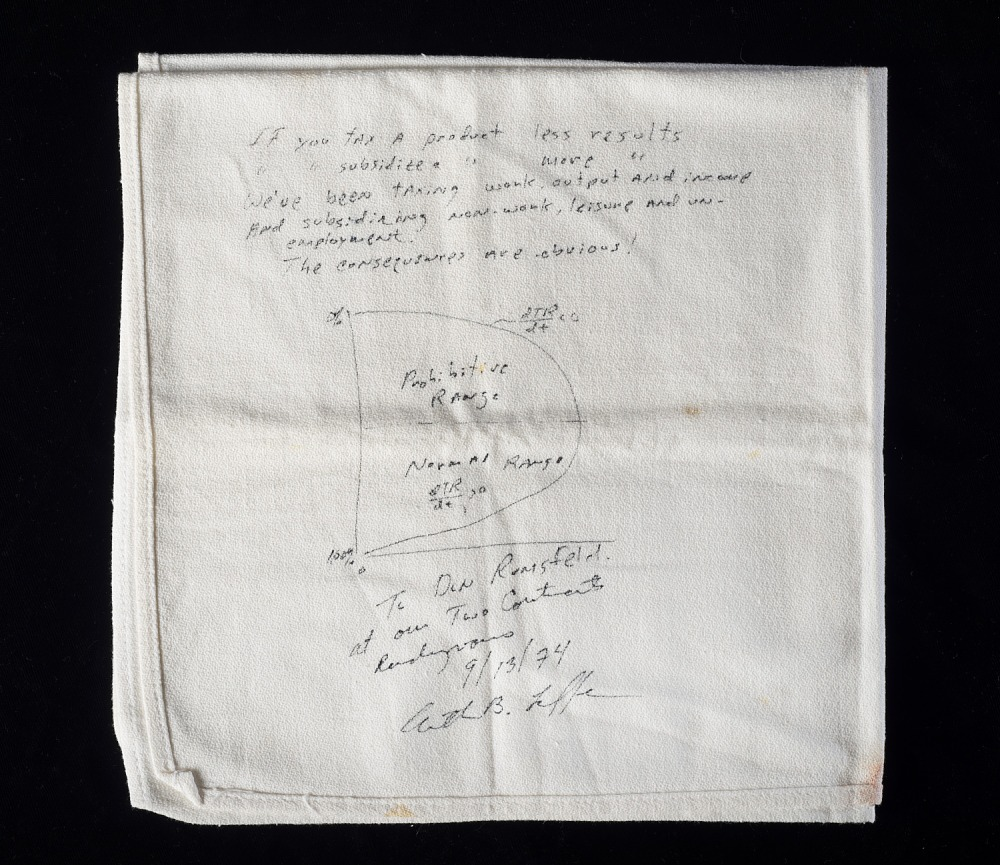 If you tax a product less results
" " subsidize a " more "
We've been taxing work, output and income
and subsidizing non-work, leisure and un-
employment.
The consequences are obvious!
dTR/dt <0
Prohibitive
Range
Normal Range
dTR/dt >0
100%
0
To Don Rumsfeld.
at our Two Continents
Rendezvous
9/13/74
Arthur B. Laffer